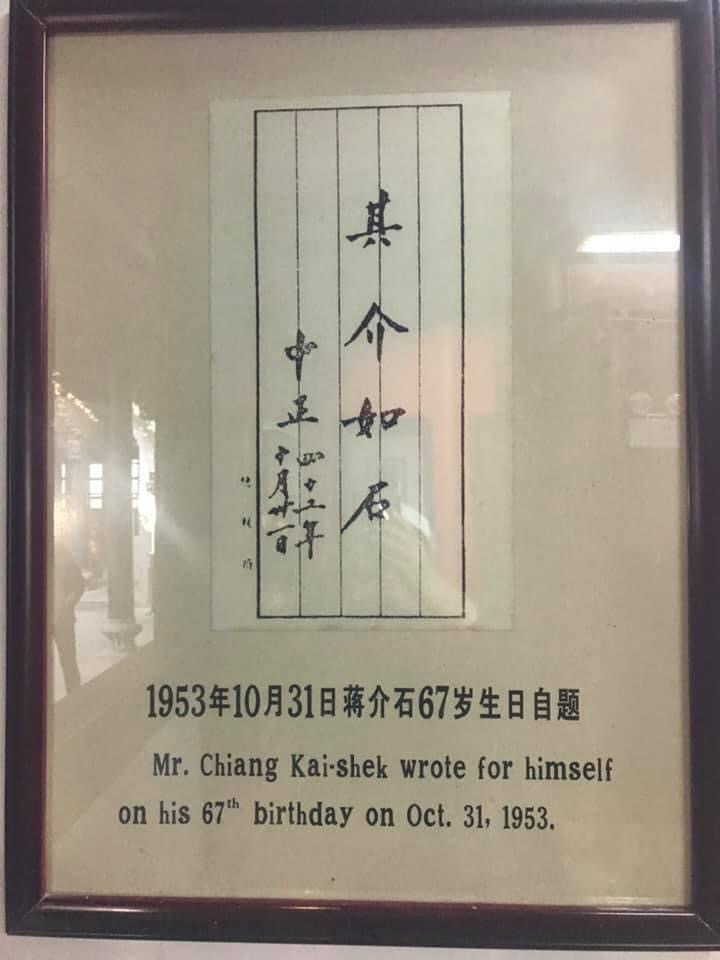 其介如石
中正 四十二年
十月卅一日
1953年10月31日蒋介石67岁生日自题
Mr. Chiang Kai-shek wrote for himself
on his 67th birthday on Oct. 31, 1953.